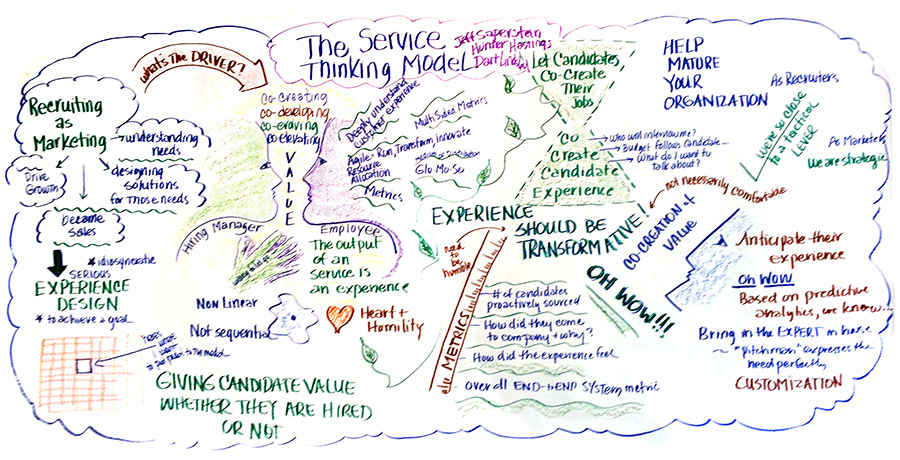 The Service
Thinking Model
Jeff Saperstein
Hunter Hastings
Dart Lindsley
What's the DRIVER?
Recruiting
as
Marketing
understanding
needs
Drive
Growth
designing
solutions
for those needs
became
sales
* idiosyncratic
SERIOUS
EXPERIENCE
DESIGN
* to achieve a goal
Co-Creating
co-developing
co-evolving
co-elevating
VALUE
Hiring Manager
Employee
Deeply understand
customer experience
Agile - Run, Transform, Innovate
Resource
Allocation
Metrics
Multi Sided Metrics
Glo Mo So
The output
of an
service is
an experience
Non linear
Not sequential
Heart +
Humility
GIVING CANDIDATE VALUE
WHETHER THEY ARE HIRED
OR NOT
Let Candidates
Co-Create
Their
Jobs
Co
Create
Candidate
Experience
Who will interview me?
Budget follows candidate...
What do I want to
talk about?
EXPERIENCE
SHOULD BE
TRANSFORMATIVE!
need
to be
humble
METRICS
# of candidates
proactively sourced
How did they come
to company + why?
How did the experience feel
overall END-to-END SYSTEM metric
OH WOW!!!
HELP
MATURE
YOUR
ORGANIZATION
As Recruiters
we're so close
to a tactical
LEVER
As Marketers
We are strategic
not necessarily comfortable
CO-CREATION of
VALUE
Anticipate their
experience
Oh WOW
Based on predictive
analytics, we know...
Bring in the EXPERT in house
~ "Pitchman" expresses the
need perfectly
CUSTOMIZATION